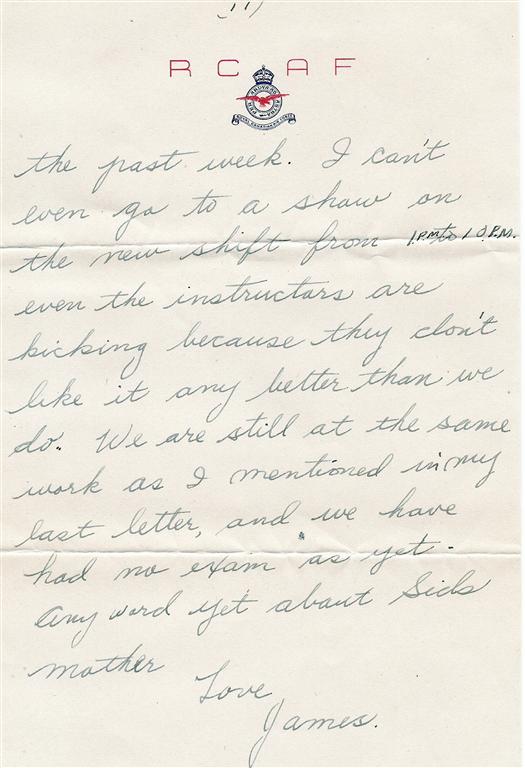 R C A F
PER ARDUA AD ASTRA
ROYAL CANADIAN AIR FORCE
the past week. I can't
even go to a show on
the new shift from 1.P.M. to 10.P.M.
even the instructors are
kicking because they don't
like it any better than we
do. We are still at the same
work as I mentioned in my
last letter, and we have
had no exam as yet.
Any word yet about Sids
mother
Love
James.